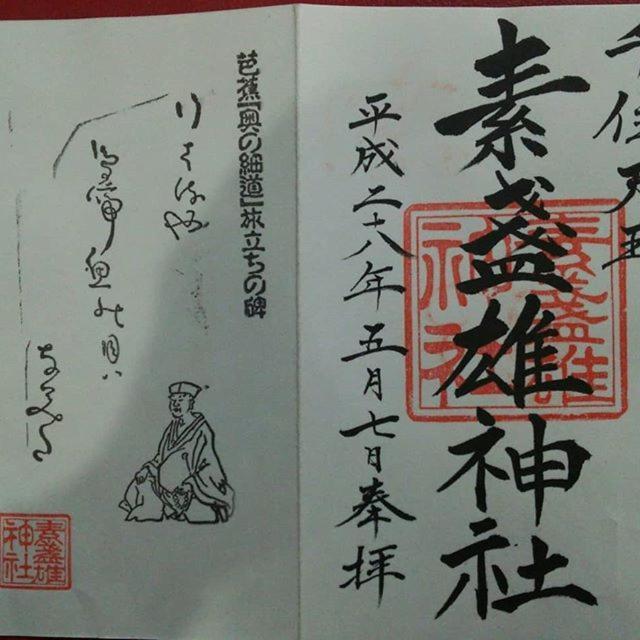 千住天王
素盞雄神社
素盞雄
神社
平成二十八年五月七日奉拝
芭蕉『奥の細道』旅立ちの碑
行はるや
鳥啼魚の目ハ
なみだ
素盞雄
神社